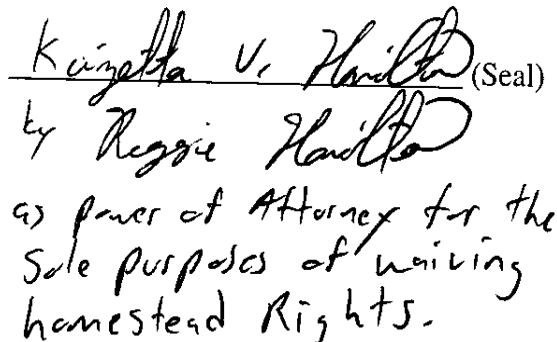 Kainzetta V. Hamilton (Seal)
by Reggie Hamilton
as power of Attorney for the
Sole purposes of waiving
homestead Rights.